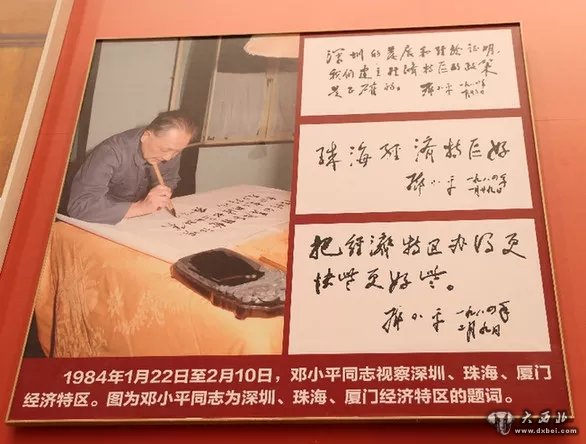 深圳的发展和经验证明，
我们建立经济特区的政策
是正确的。 邓小平 一九八四年
一月廿六日
珠海经济特区好
邓小平 一九八四年
一月廿九日
把经济特区办得更
快些更好些。
邓小平 一九八四年
二月九日
1984年1月22日至2月10日，邓小平同志视察深圳、珠海、厦门
经济特区。图为邓小平同志为深圳、珠海、厦门经济特区的题词。
大西北
www.dxbei.com